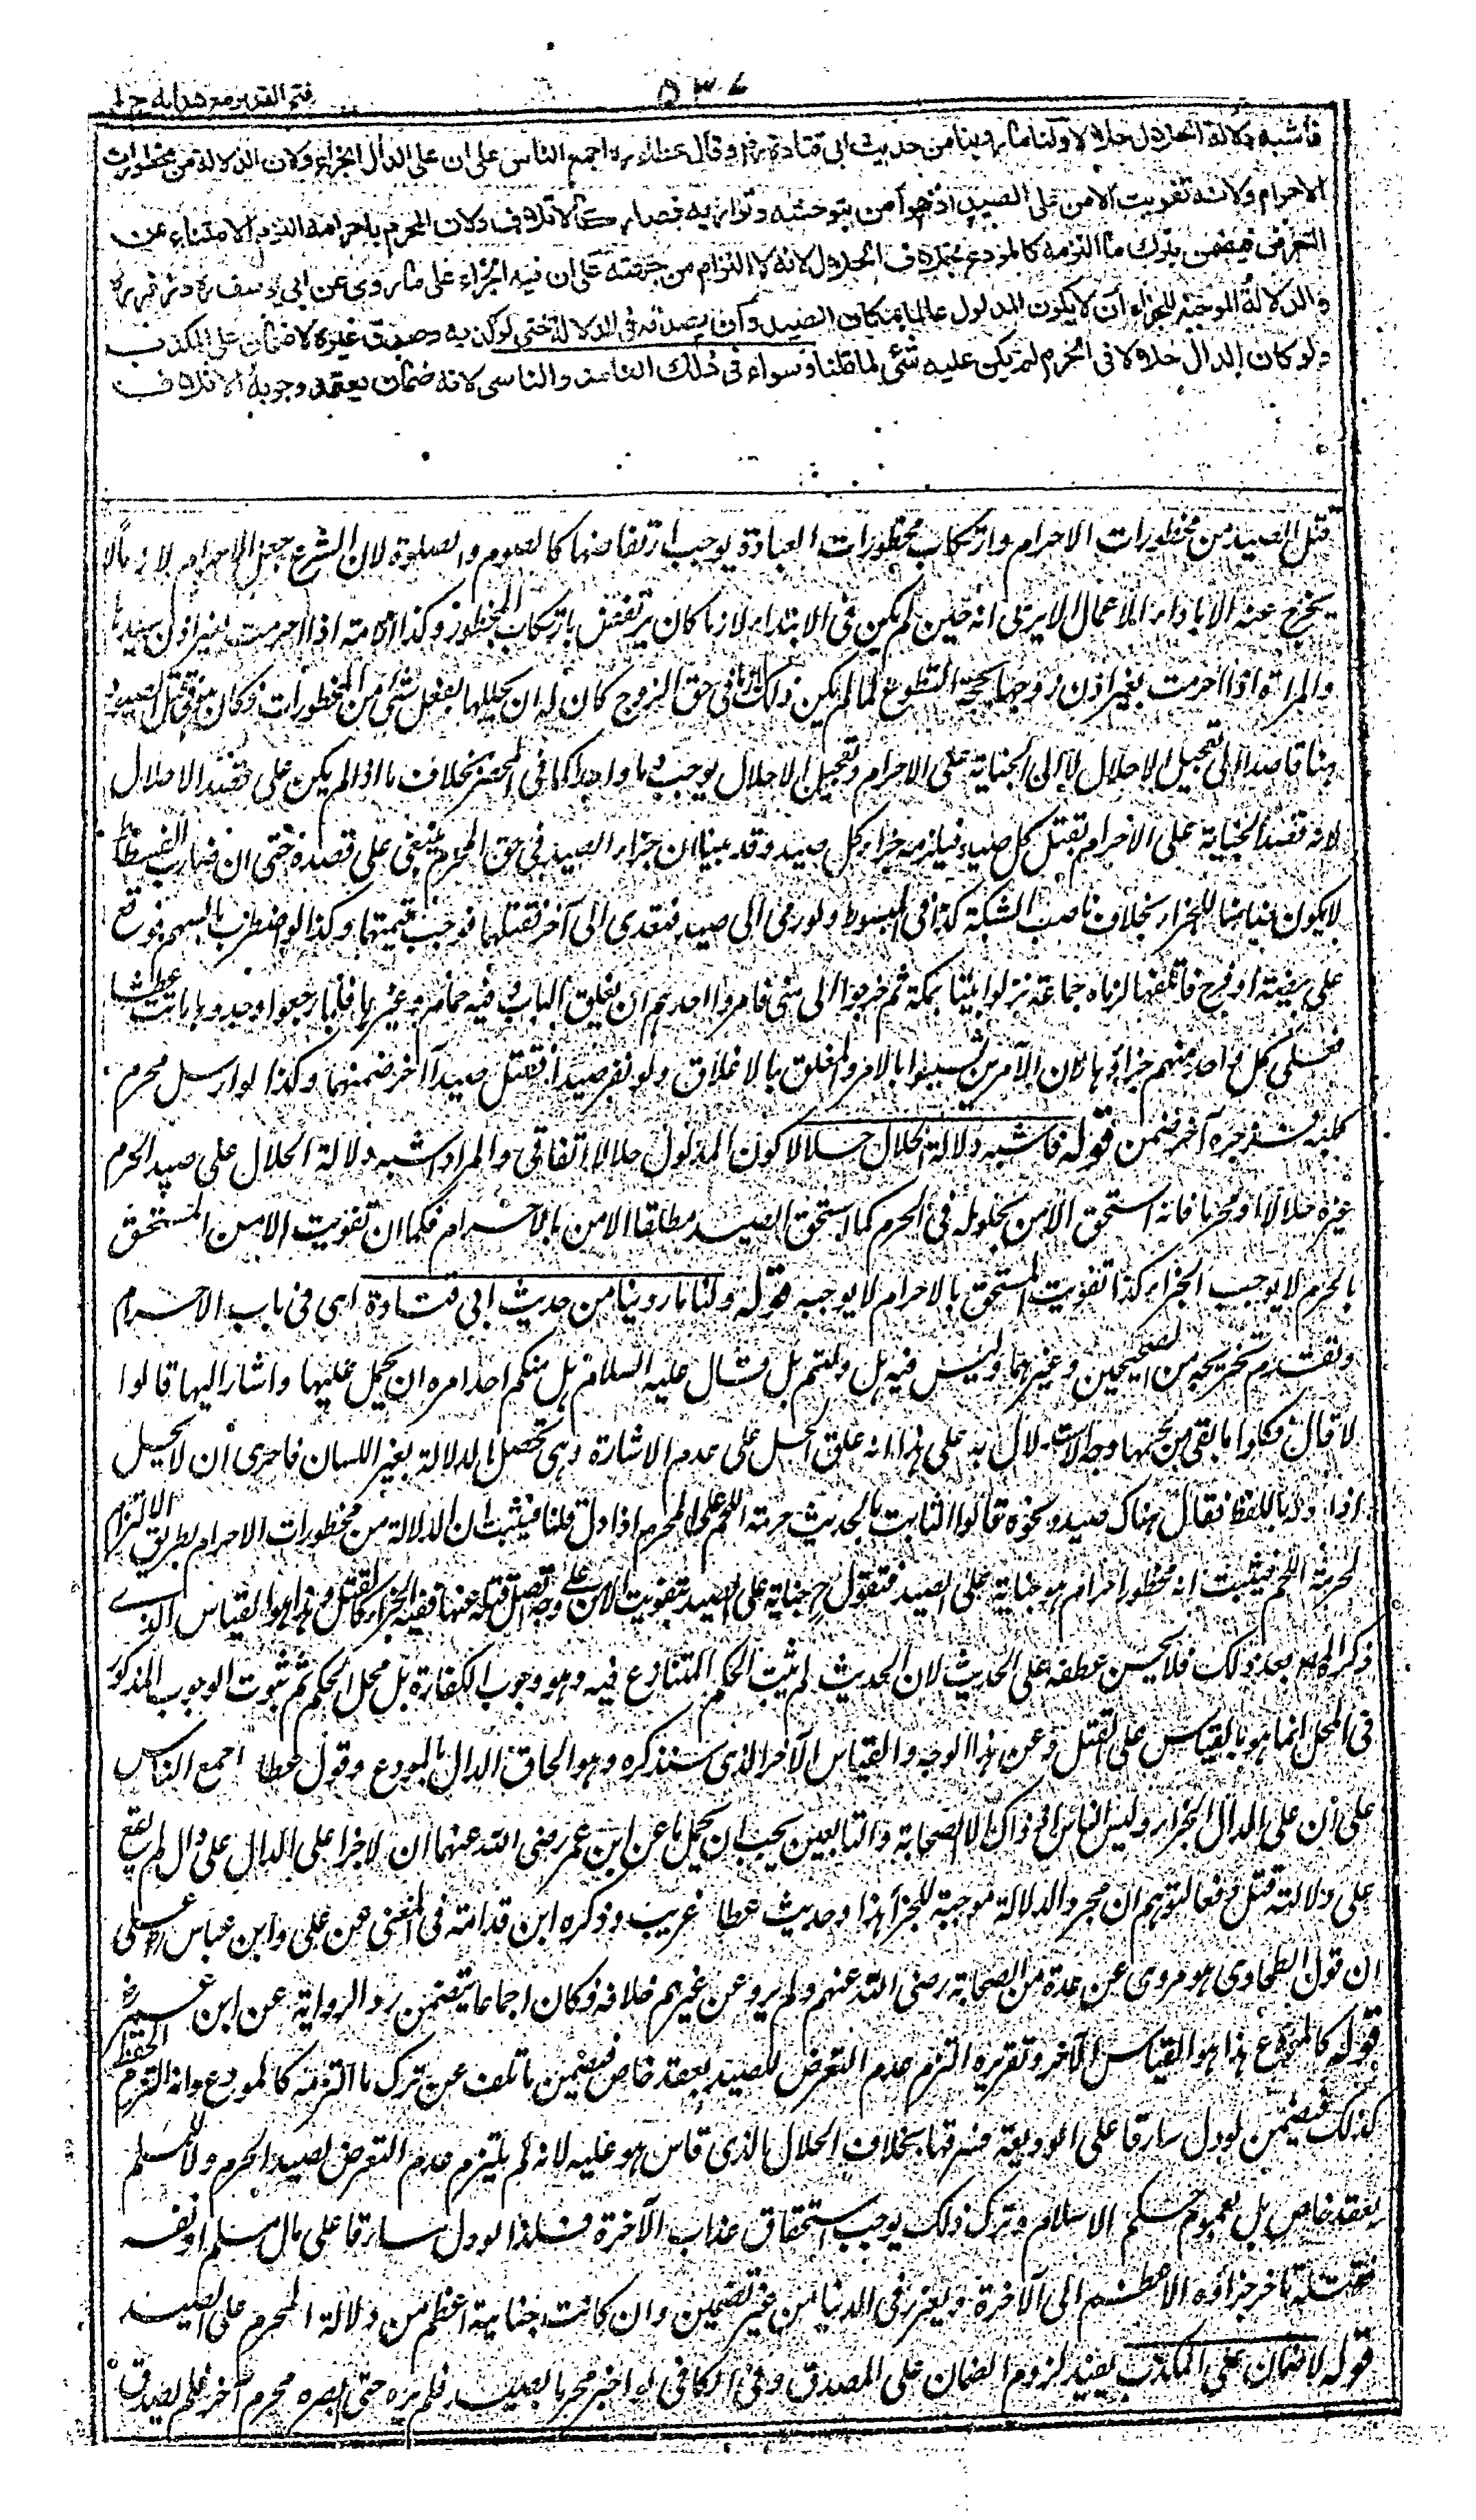 فتح القدير مع هدايه ج ١
٥٣٤
فاشبه دلالة الحلال حلالا ولنا ما روينا من حديث ابي قتادة رض وقال عطاء ره اجمع الناس على ان على الدال الجزاء ولان الدلالة من محظورات
الاحرام ولانه تفويت الامن على الصيد اذ هو آمن بتوحشه وتواريه فصار كالاتلاف ولان المحرم باحرامه التزم الامتناع عن
التعرض فيضمن بترك ما التزمه كالمودع بخلاف الحلال لانه لا التزام من جهته على ان فيه الجزاء على ما روي عن ابي يوسف ره وزفر ره
والدلالة الموجبة للجزاء ان لا يكون المدلول عالما بمكان الصيد وان يصدقه في الدلالة حتى لو كذبه وصدق غيره لا ضمان على المكذب
ولو كان الدال حلالا في الحرم لم يكن عليه شئ لما قلنا وسواء في ذلك العامد والناسى لانه ضمان يعتمد وجوبه الاتلاف
قتل الصيد من محظورات الاحرام وارتكاب محظورات العبادة يوجب ارتفاضها كالصوم والصلوة لان الشرع جعل الاحرام لازما لا
يخرج عنه الا باداء الاعمال الا يرى انه حين لم يكن فى الابتداء لازما كان يرتفض بارتكاب المحظور وكذا الامة اذا احرمت بغير اذن سيدها
والمراة اذا احرمت بغير اذن زوجها بحجة التطوع لما لم يكن ذلك لازما فى حق الزوج كان له ان يحللها بفعل شئ من المحظورات فكان هو فى قتل الصيود
هنا قاصدا الى تعجيل الاحلال لا الى الجناية على الاحرام وتعجيل الاحلال يوجب دما واحدا كما فى المحصر بخلاف ما اذا لم يكن على قصد الاحلال
لانه قصد الجناية على الاحرام بقتل كل صيد فيلزمه جزاء كل صيد وقد بينا ان جزاء الصيد فى حق المحرم ينبنى على قصده حتى ان ضارب الفسطاط
لا يكون ضامنا للجزاء بخلاف ناصب الشبكة كذا فى المبسوط ولو رمى الى صيد فتعدى الى آخر فقتلهما فوجب قيمتهما وكذا لو اضطرب بالسهم فوقع
على بيضة او فرخ فاتلفها لزماه جماعة نزلوا بيتا بمكة ثم خرجوا الى منى فامروا احدهم ان يغلق الباب وفيه حمام وغيرها فلما رجعوا وجدوها ماتت عطشا
فعلى كل واحد منهم جزاؤها لان الآمرين تسببوا بالامر والمغلق بالاغلاق ولو نفر صيدا فقتل صيدا آخر ضمنهما وكذا لو ارسل محرم
كلبه فزجره آخر ضمن قوله فاشبه دلالة الحلال حلالا كون المدلول حلالا اتفاقى والمراد اشبه دلالة الحلال على صيد الحرم
غيره حلالا او محرما فانه استحق الامن بحلوله فى الحرم كما استحق الصيد مطلقا الامن بالاحرام فكما ان تفويت الامن المستحق
بالحرم لا يوجب الجزاء كذا تفويت المستحق بالاحرام لا يوجبه قوله ولنا ما روينا من حديث ابى قتادة اى فى باب الاحرام
وتقدم تخريجه من الصحيحين وغيرهما وليس فيه هل دللتم بل قال عليه السلام هل منكم احد امره ان يحمل عليها واشار اليها قالوا
لا قال فكلوا ما بقى من لحمها وجه الاستدلال به على هذا انه علق الحل على عدم الاشارة وهى تحصل الدلالة بغير اللسان فاحرى ان لا يحل
اذا دل باللفظ فقال هناك صيد ونحوه قالوا الثابت بالحديث حرمة اللحم على المحرم اذا دل قلنا فيثبت ان الدلالة من محظورات الاحرام بطريق الالتزام
لحرمة اللحم فيثبت انه محظور احرام هو جناية على الصيد فنقول ح جناية على الصيد بتفويت الامن على وجه اتصل قتله عنها ففيه الجزاء كالقتل وهذا هو القياس الذى
ذكره المصر بعد ذلك فلا يحسن عطفه على الحديث لان الحديث لم يثبت الحكم المتنازع فيه وهو وجوب الكفارة بل محل الحكم ثم ثبوت الوجوب المذكور
فى المحل انما هو بالقياس على القتل وعن هذا الوجه والقياس الآخر الذى سنذكره وهو الحاق الدال بالمودع وقول عطا اجمع الناس
على ان على الدال الجزاء وليس الناس اذ ذاك الا الصحابة والتابعين يجب ان يحمل ما عن ابن عمر رضى الله عنهما ان لا جزا على الدال على دال لم يقع
على دلالته قتل دفعا لتوهم ان مجرد الدلالة موجبة للجزا هذا وحديث عطا غريب وذكره ابن قدامة فى المغنى عن على وابن عباس رض وعلى
ان قول الطحاوى هو مروى عن عدة من الصحابة رضى الله عنهم ولم يرو عن غيرهم خلافه فكان اجماعا يتضمن رد الرواية عن ابن عمر رض
قوله كالمودع هذا هو القياس الآخر وتقريره التزم عدم التعرض للصيد بعقد خاص فيضمن ما تلف عن ترك ما التزمه كالمودع وانه التزم الحفظ
كذلك فيضمن لو دل سارقا على الوديعة فسرقها بخلاف الحلال بالذى قاس هو عليه لانه لم يلتزم عدم التعرض لصيد الحرم ولا لمسلم
بعقد خاص بل بعموم حكم الاسلام وترك ذلك يوجب استحقاق عذاب الآخرة فلذا لو دل سارقا على مال مسلم او نفسه
فقتله تاخر جزاؤه الاعظم الى الآخرة ويعزر فى الدنيا من غير تضمين وان كانت جناية اعظم من دلالة المحرم على الصيد
قوله لا ضمان على المكذب يفيد لزوم الضمان على المصدق وفى الكافى لو اخبر محرما بصيد فلم يره حتى اخبره محرم آخر فلم يصدق